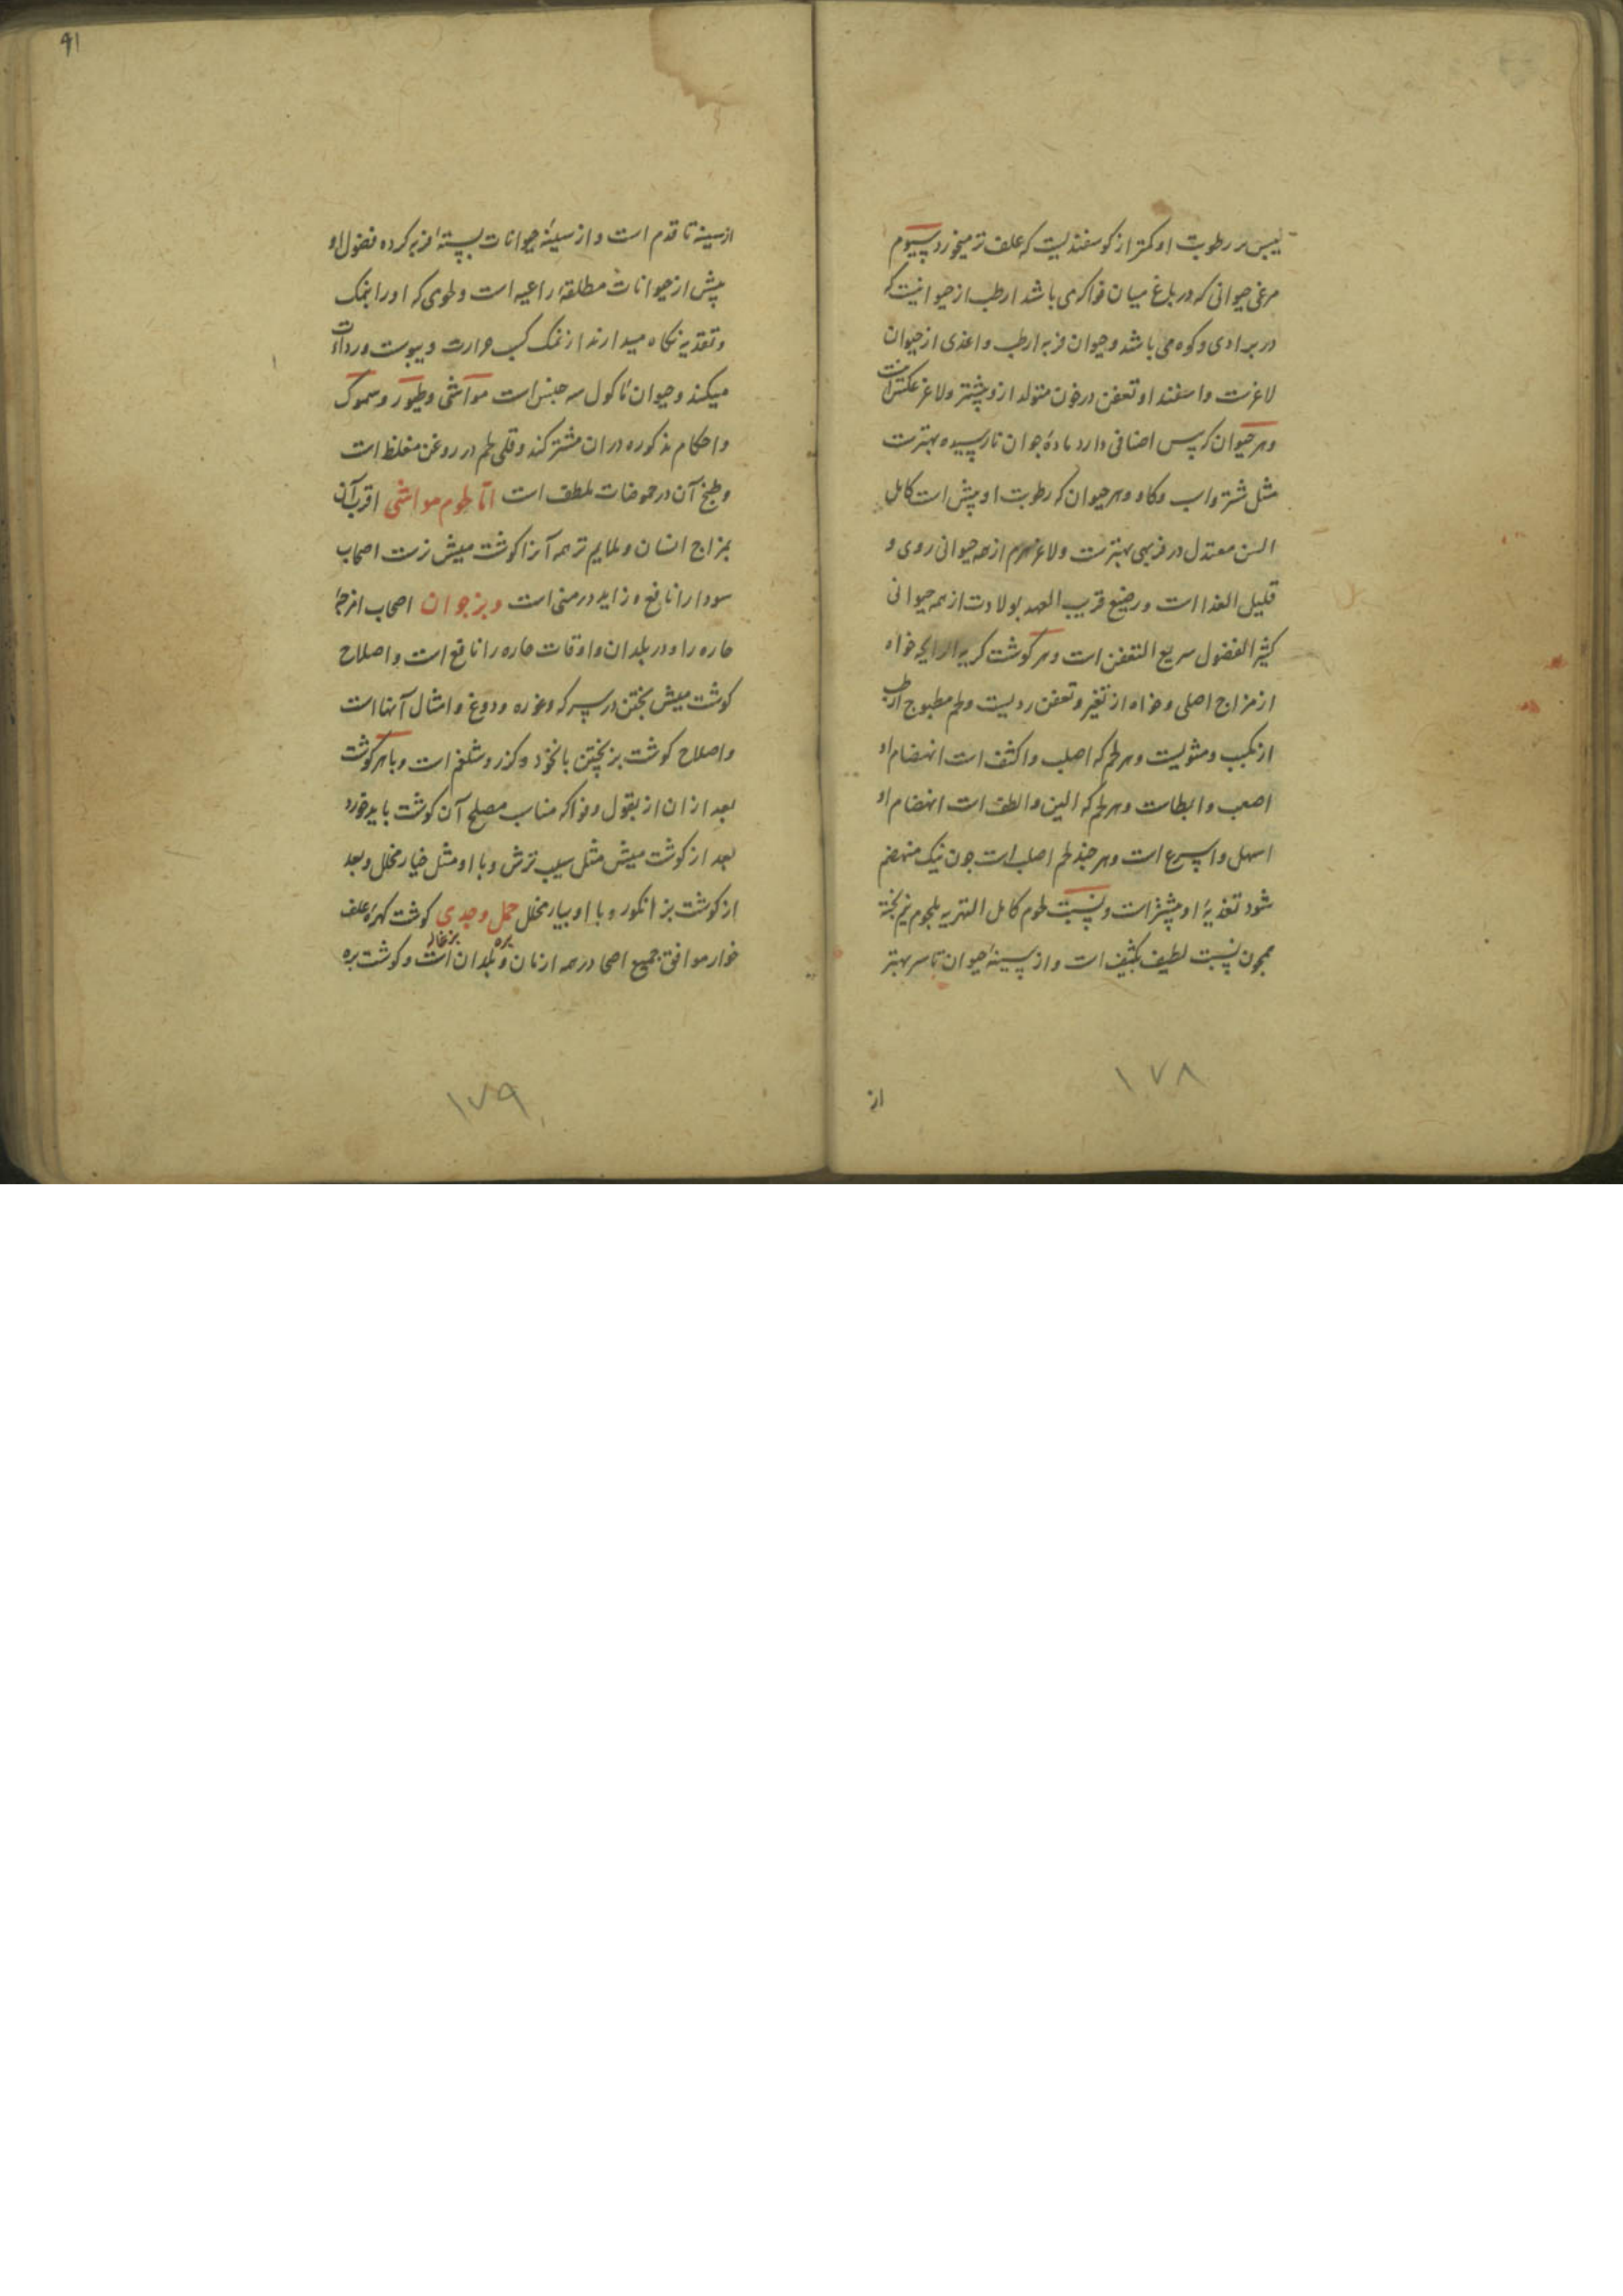 یبس بر رطوبت او کمتر از گوسفندیست که علف تر میخورد سیوم
مرغی حیوانی که در باغ میان فواکه می باشد ارطب از حیوانیست که
در بوادی و کوه می باشد و حیوان فربه ارطب و اغذی از حیوان
لاغرست و استعداد تعفن در خون متولد ازو بیشتر و لاغر عکس آنست
و هر حیوان که یبس اضافی دارد مادهٔ جوان نارسیده بهترست
مثل شتر و اسب و کاو و هر حیوان که رطوبت او بیش است کامل
السن معتدل در فربهی بهترست و لاغر هرم از همه حیوانی ردی و
قلیل الغذا است و رضیع قریب العهد بولادت از همه حیوانی
کثیر الفضول سریع التعفن است و هر گوشت کریه الرایحه خواه
از مزاج اصلی و خواه از تغیر و تعفن ردیست و لحم مطبوخ ارطب
از مکبب و مشویست و هر لحم که اصلب و اکثف است انهضام او
اصعب و ابطاست و هر لحم که الین و الطف است انهضام او
اسهل و اسرع است و هر چند لحم اصلب است چون نیک منهضم
شود تغذیهٔ او بیشتر است و نسبت لحوم کامل التهریه بلحوم نیم پخته
همچون نسبت لطیف بکثیف است و از سینهٔ حیوان تا سر بهتر
از
۱۷۸
۹۱
از سینه تا قدم است و از سینهٔ حیوانات بسته فربه کرده فضول او
بیش از حیوانات مطلقهٔ راعیه است و لحومی که او را بنمک
و تقدید نگاه میدارند از نمک کسب حرارت و یبوست و رداءت
میکند و حیوان ماکول سه جنس است مواشی و طیور و سموک
و احکام مذکوره در ان مشترکند و قلی لحم در روغن مغلظ است
و طبخ آن در حموضات ملطف است اما لحوم مواشی اقرب آن
بمزاج انسان و ملایم تر همه آنرا گوشت میش نرست اصحاب
سودا را نافع و زاید در منی است و بز جوان اصحاب امزجهٔ
حاره را و در بلدان و اوقات حاره را نافع است و اصلاح
گوشت میش بپختن در سرکه و غوره و دوغ و امثال آنها است
و اصلاح گوشت بز بپختن با نخود و گزر و شلغم است و با هر گوشت
بعد از ان از بقول و فواکه مناسب مصلح آن گوشت باید خورد
بعد از گوشت میش مثل سیب ترش و با او مثل خیار مخلل و بعد
از گوشت بز انگور و با او بیار مخلل حمل و جدی گوشت کهرهٔ علف
بره بزغاله
خوار موافق جمیع اصحا در همه ازمان و بلدان است و گوشت بره
۱۷۹